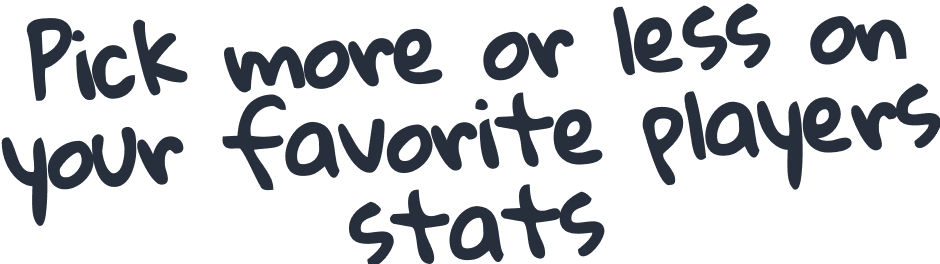 Pick more or less on
your favorite players
stats